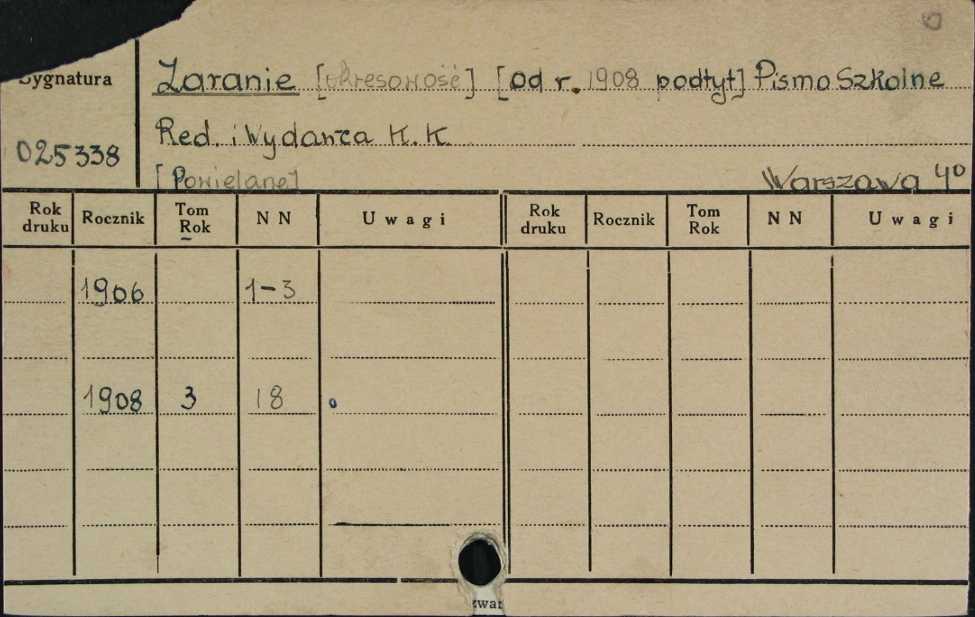 Sygnatura
025338
Zaranie [okresowość] [od r. 1908 podtyt] Pismo Szkolne
Red. i Wydawca K. K.
[Powielane] Warszawa 4º
Rok druku Rocznik Tom Rok N N Uwagi Rok druku Rocznik Tom Rok N N Uwagi
1906 1-3
1908 3 18